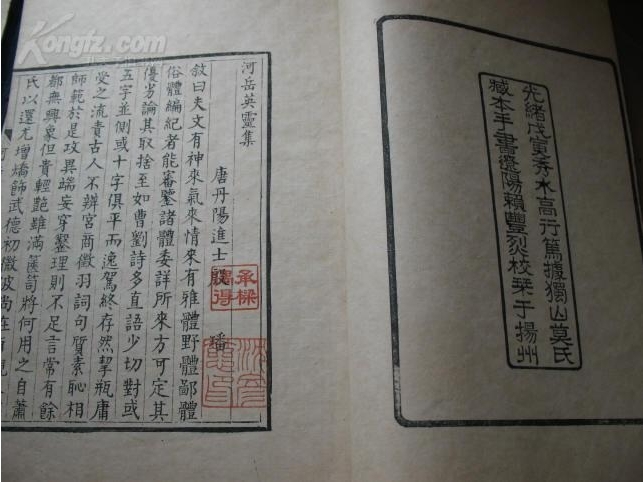 光緒戊寅秀水高行篤據獨山莫氏
臧本手書遼陽賴豐烈校栞于揚州
河岳英靈集
唐丹陽進士殷 璠
敘曰夫文有神來氣來情來有雅體野體鄙體
俗體編紀者能審鑒諸體委詳所來方可定其
優劣論其取捨至如曹劉詩多直語少切對或
五字並側或十字俱平而逸駕終存然挈瓶庸
受之流責古人不辨宮商徵羽詞句質素恥相
師範於是攻異端妄穿鑿理則不足言常有餘
都無興象但貴輕艷雖滿篋笥將何用之自蕭
氏以還尤增矯飾武德初微波尚在
Kongfz.com